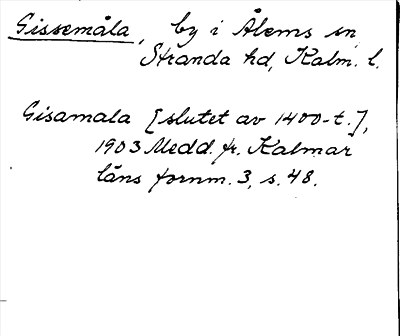 Gissemåla, by i Ålems sn
Stranda hd, Kalm. l.
Gisamala [slutet av 1400-t.],
1903 Medd. fr. Kalmar
läns fornm. 3, s. 48.